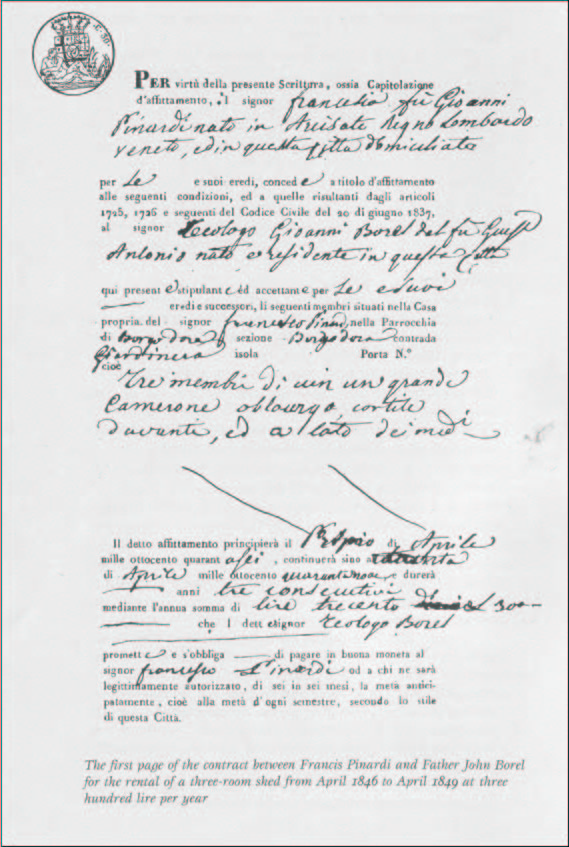 PER virtù della presente Scrittura, ossia Capitolazione
d'affittamento, il signor francesco fù Gioanni
Pinardi nato in Arcisate Regno Lombardo
veneto, ed in questa Città domiciliato
per Se e suoi eredi, concede a titolo d'affittamento
alle seguenti condizioni, ed a quelle risultanti dagli articoli
1725, 1726 e seguenti del Codice Civile del 20 di giugno 1837,
al signor Teologo Gioanni Borel del fù Giuse
Antonio nato e residente in questa Città
qui present e stipulant e èd accettante per Se e suoi
eredi e successori, li seguenti membri situati nella Casa
propria del signor francesco Pinardi nella Parrocchia
di Borgodora sezione Borgodora contrada
Giardiniera isola Porta N.º
cioè
Tre membri di cui un grande
Camerone oblongo, cortile
davanti, ed a lato dei medi
Il detto affittamento principierà il Primo di Aprile
mille ottocento quarant asei, continuerà sino a
di Aprile mille ottocento quarantanove e durerà
anni tre consecutivi
mediante l'annua somma di lire trecento L 300
che l dett signor Teologo Borel
promett e e s'obbliga di pagare in buona moneta al
signor francesco Pinardi od a chi ne sarà
legittimamente autorizzato, di sei in sei mesi, la metà antici-
patamente, cioè alla metà d'ogni semestre, secondo lo stile
di questa Città.
The first page of the contract between Francis Pinardi and Father John Borel
for the rental of a three-room shed from April 1846 to April 1849 at three
hundred lire per year